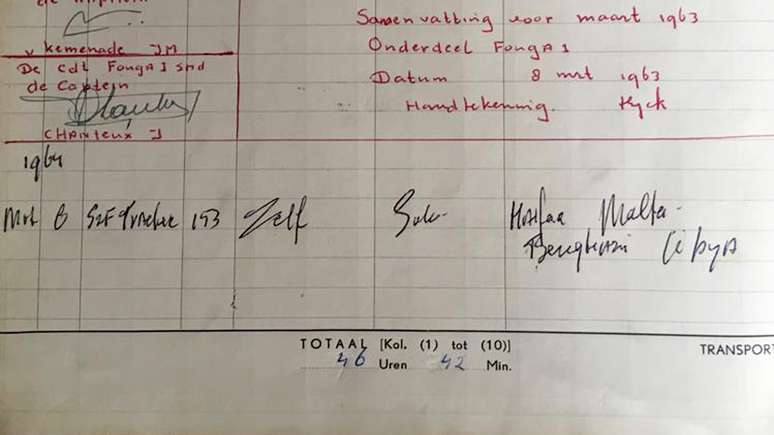 v Kemenade JM
De Cdt Fouga I smd
de Captejn
CHAinteux J
Samenvatting voor maart 1963
Onderdeel Fouga I
Datum 8 mrt 1963
Handtekening. Kyck
1964
Mrt 6 193 Zelf Solo Malta
Benghazi Libya
TOTAAL [Kol. (1) tot (10)]
46 Uren 42 Min.
TRANSPORT